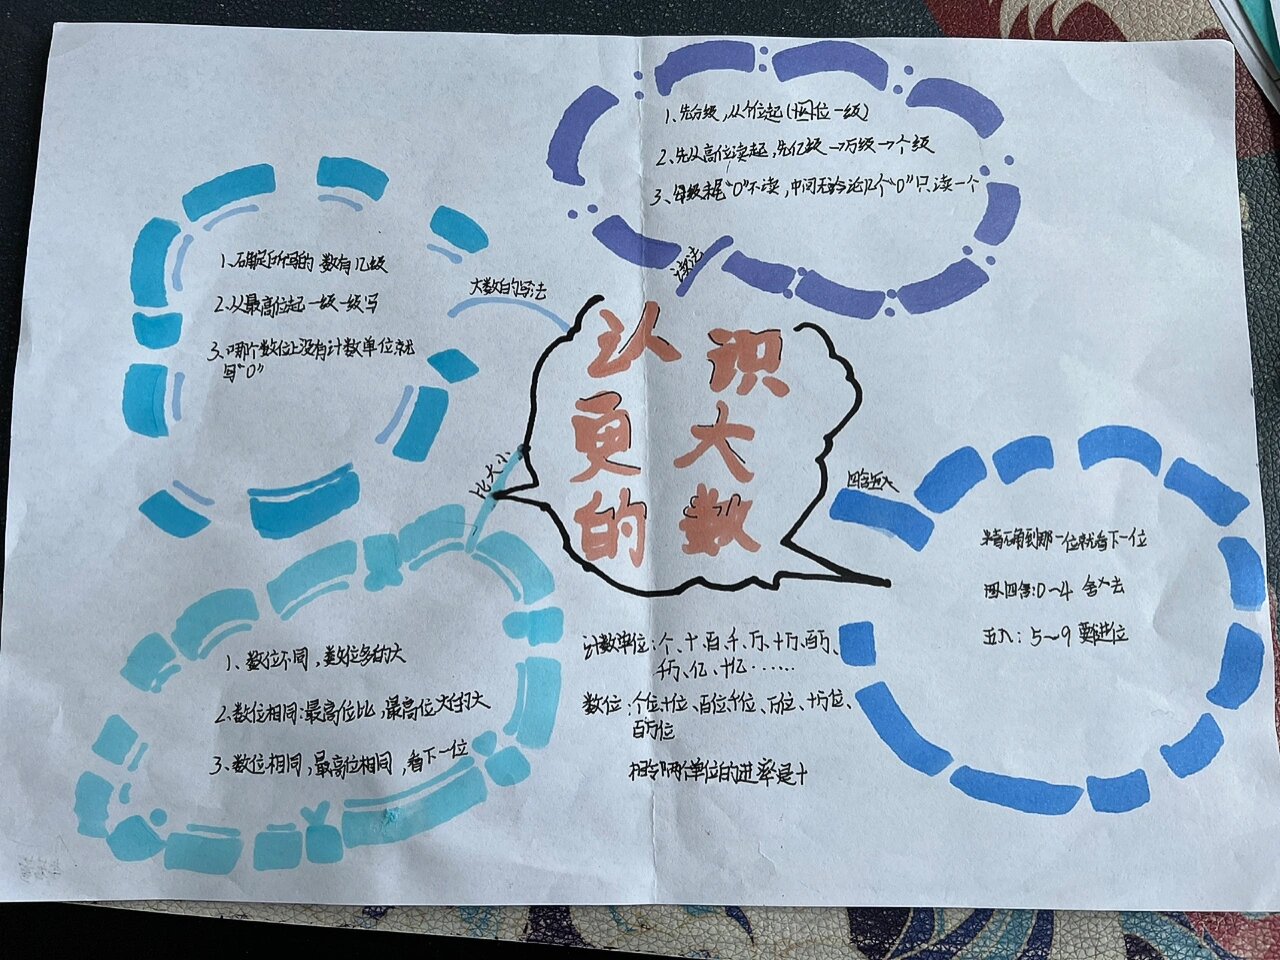 认识
更大
的数
读法
1、先分级,从个位起(四位一级)
2、先从高位读起,先亿级→万级→个级
3、每级末尾"0"不读,中间无论几个"0"只读一个
大数的写法
1、确定所写的数有几级
2、从最高位起一级一级写
3、哪个数位上没有计数单位就
写"0"
比大小
1、数位不同,数位多的大
2、数位相同:最高位比,最高位大的大
3、数位相同,最高位相同,看下一位
四舍五入
精确到那一位就看下一位
四舍:0~4 舍去
五入:5~9 要进位
计数单位:个、十、百、千、万、十万、百万、
千万、亿、十亿……
数位:个位十位、百位千位、万位、十万位、
百万位
相邻两个单位的进率是十